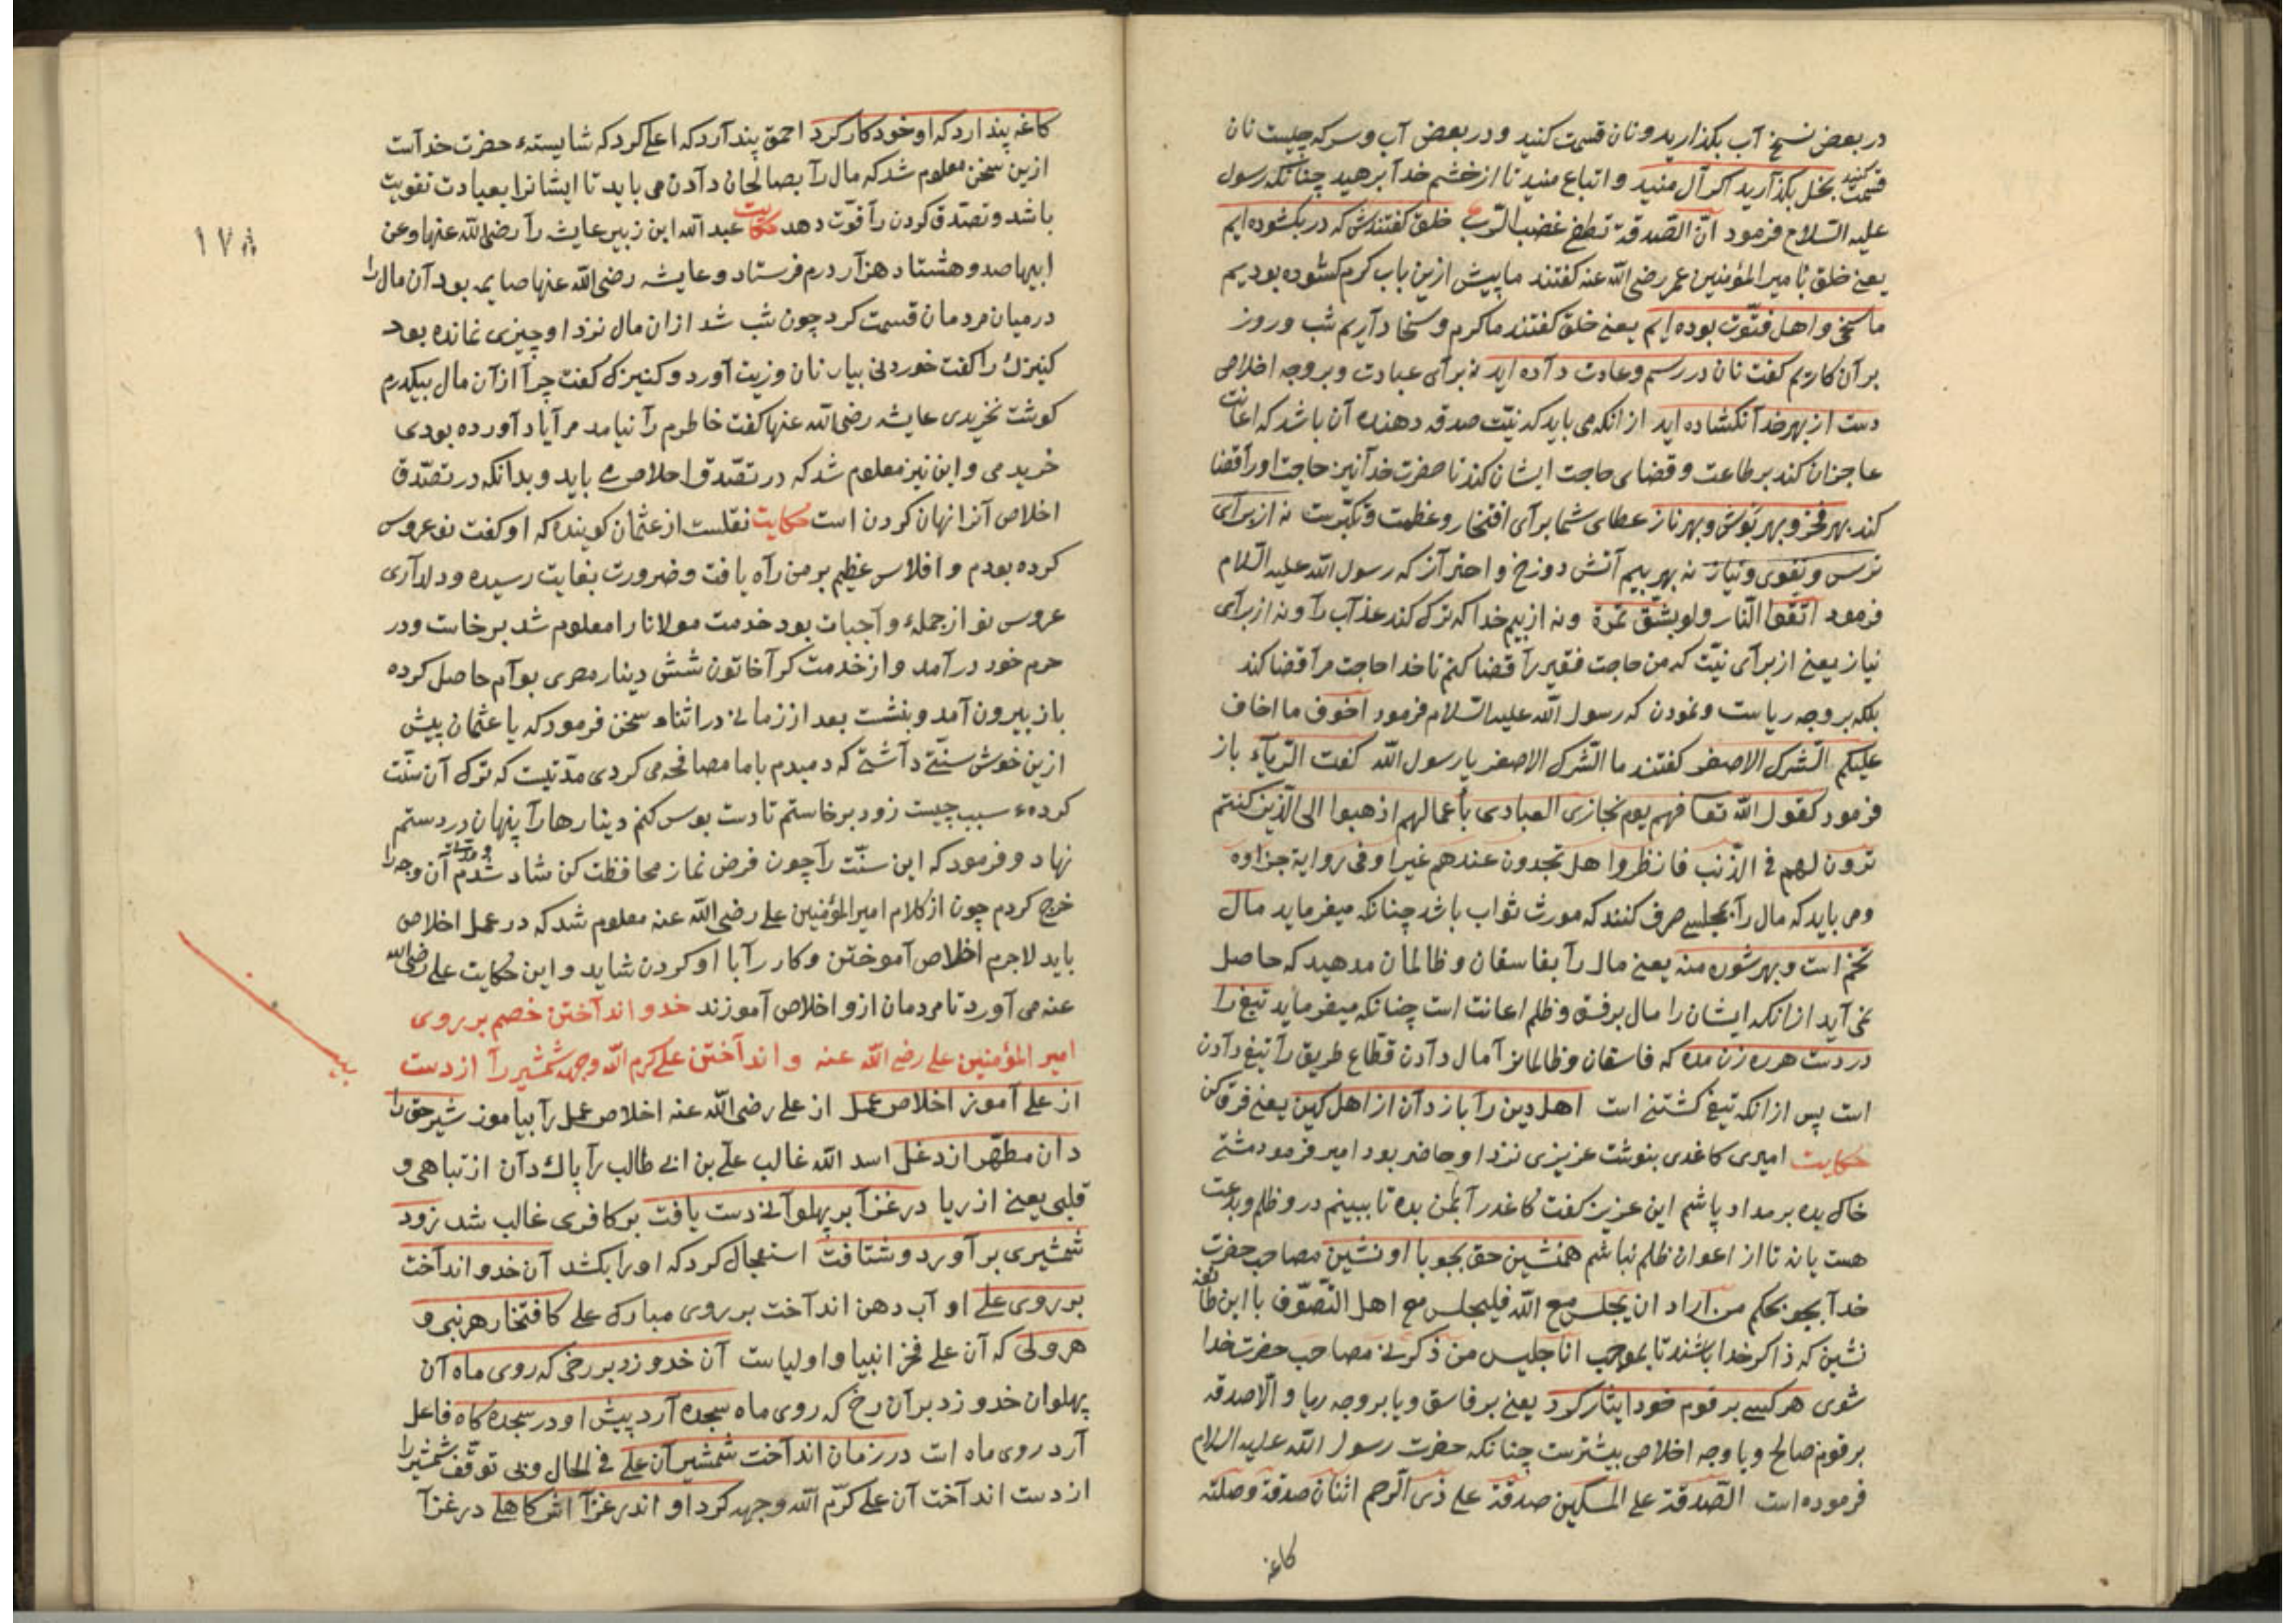 در بعض نسخ آب بكذاريد و نان قسمت كنيد و در بعض آب و سركه چيست نان
قسمت كنيد بخل بكذاريد اكر آل منيد و اتباع منيد تا از خشم خدا برهيد چنانكه رسول
عليه السّلام فرمود انّ الصّدقة تطفئ غضب الرّب خلق كفتندش كه در بكشوده ايم
يعنے خلق با امير المؤمنين عمر رضی الله عنه كفتند ما پيش ازين باب كرم كشوده بوديم
ما سخی و اهل فتوّت بوده ايم يعنے خلق كفتند ما كرم و سخا داريم شب و روز
بر آن كاريم كفت نان در رسم و عادت داده ايد نه برای عبادت و بر وجه اخلاص
دست از بهر خدا نكشاده ايد از انكه می بايد كه نيّت صدقه دهنده آن باشد كه اعانت
عاجزان كند بر طاعت و قضای حاجت ايشان كند تا حضرت خدا نيز حاجت اورا قضا
كند بهر فخر و بهر بوش و بهر ناز عطای شما برای افتخار و عظمت و تكبّرست نه از برای
ترس و تقوی و نياز نه بهر بيم آتش دوزخ و احتراز كه رسول الله عليه السّلام
فرمود اتّقوا النّار ولو بشقّ تمرة و نه از بيم خدا كه ترك كند عذاب را و نه از برای
نياز يعنے از برای نيّت كه من حاجت فقير را قضا كنم تا خدا حاجت مرا قضا كند
بلكه بر وجه رياست و نمودن كه رسول الله عليه السّلام فرمود اخوف ما اخاف
عليكم الشّرك الاصغر كفتند ما الشّرك الاصغر يا رسول الله كفت الرّياء باز
فرمود كقول الله تعا فهم يوم نجازی العبادی بأعمالهم اذهبوا الی الّذين كنتم
ترون لهم فی الذّنب فانظروا هل تجدون عندهم غيرا وفی رواية جزاوه
و می بايد كه مال را بمجلسے صرف كنند كه مورث ثواب باشد چنانكه ميفرمايد مال
تخم است و بهر شوره منه يعنے مال را بفاسقان و ظالمان مدهيد كه حاصل
نمی آيد از انكه ايشان را مال بر فسق و ظلم اعانت است چنانكه ميفرمايد تيغ را
در دست هر ره زن مده كه فاسقان و ظالمانرا مال دادن قطّاع طريق را تيغ دادن
است پس از انكه تيغ كشتنے است اهل دين را باز دان از اهل كين يعنے فرق كن
حكايت اميری كاغدی بنوشت عزيزی نزد او حاضر بود امير فرمود مشتے
خاك بده بر مداد پاشم اين عزيز كفت كاغدرا بمن بده تا ببينم در و ظلم و بدعت
هست يا نه تا از اعوان ظلم نباشم همنشين حق بجو با او نشين مصاحب حضرت
خدا بجو بحكم من اراد ان يجلس مع الله فليجلس مع اهل التّصوّف با اين طائفه
نشين كه ذاكر خدا باشند تا بموجب انا جليس من ذكرنے مصاحب حضرت خدا
شوی هر كسے بر قوم خود ايثار كرد يعنے بر فاسق و يا بر وجه ريا و الّا صدقه
بر قوم صالح و با وجه اخلاص بيشترست چنانكه حضرت رسول الله عليه السلام
فرموده است الصّدقة علی المسكين صدقة علی ذی الرّحم اثنتان صدقة وصلة
كاغه
١٧٨
كاغه پندارد كه او خود كار كرد احمق پندارد كه اعلی كرد كه شايستهٔ حضرت خداست
ازين سخن معلوم شد كه مال را بصالحان دادن می بايد تا ايشانرا بعبادت تقويت
باشد و تصدّق كردن را قوّت دهد حكايت عبد الله ابن زبير عايشه را رضی الله عنها و عن
ابيها صد و هشتاد هزار درم فرستاد و عايشه رضی الله عنها صايمه بود آن مال را
در ميان مردمان قسمت كرد چون شب شد از ان مال نزد او چيزی نمانده بود
كنيزك را كفت خوردنی بيار نان و زيت آورد و كنيزك كفت چرا از آن مال بيكدرم
كوشت نخريدی عايشه رضی الله عنها كفت خاطرم را نيامد مرا ياد آورده بودی
خريدمی و اين نيز معلوم شد كه در تصّدق اخلاص مے بايد و بدانكه در تصّدق
اخلاص آنرا نهان كردن است حكايت نقلست از عثمان كوينده كه او كفت نو عروس
كرده بودم و افلاس عظيم بر من راه يافت و ضرورت بغايت رسيده و دلداری
عروس نو از جملهٔ واجبات بود خدمت مولانا را معلوم شد برخاست و در
حرم خود در آمد و از خدمت كرا خاتون شش دينار مصری بوام حاصل كرده
باز بيرون آمد و بنشست بعد از زمانے در اثناء سخن فرمود كه يا عثمان پيش
ازين خوش سنّتے داشتے كه دمبدم با ما مصافحه می كردی مدّتيست كه ترك آن سنّت
كردهٔ سبب چيست زود برخاستم تا دست بوس كنم دينارها را پنهان در دستم
نهاد و فرمود كه اين سنّت را چون فرض نماز محافظت كن شاد شدم و مدّتے آن وجه را
خرج كردم چون از كلام امير المؤمنين علی رضی الله عنه معلوم شد كه در عمل اخلاص
بايد لاجرم اخلاص آموختن و كار را با او كردن شايد و اين حكايت علی رضی الله
عنه می آورد تا مردمان ازو اخلاص آموزند خدو انداختن خصم بر روی
امير المؤمنين علی رضی الله عنه و انداختن علی كرم الله وجهه شمشير را از دست
از علی آموز اخلاص عمل از علی رضی الله عنه اخلاص عمل را بياموز شير حق را
دان مطهّر از دغل اسد الله غالب علی بن ابی طالب را پاك دان از تباهی و
قلبی يعنے از ريا در غزا بر پهلوانے دست يافت بر كافری غالب شد زود
شمشيری بر آورد و شتافت استعجال كرد كه او را بكشد آن خدو انداخت
بر روی علی او آب دهن انداخت بر روی مبارك علی كافتخار هر نبی و
هر ولی كه آن علی فخر انبيا و اولياست آن خدو زد بر رخی كه روی ماه آن
پهلوان خدو زد بر آن رخ كه روی ماه سجده آرد پيش او در سجده كاه فاعل
آرد روی ماه است در زمان انداخت شمشير آن علی فی الحال و بی توقّف شمشير را
از دست انداخت آن علی كرّم الله وجهه كرد او اندر غزا اش كاهلی در غزا